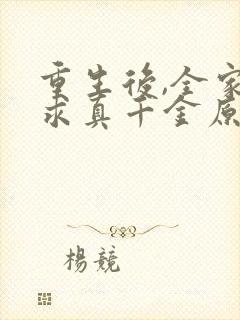 重生後,全家
求真千金原
楊競